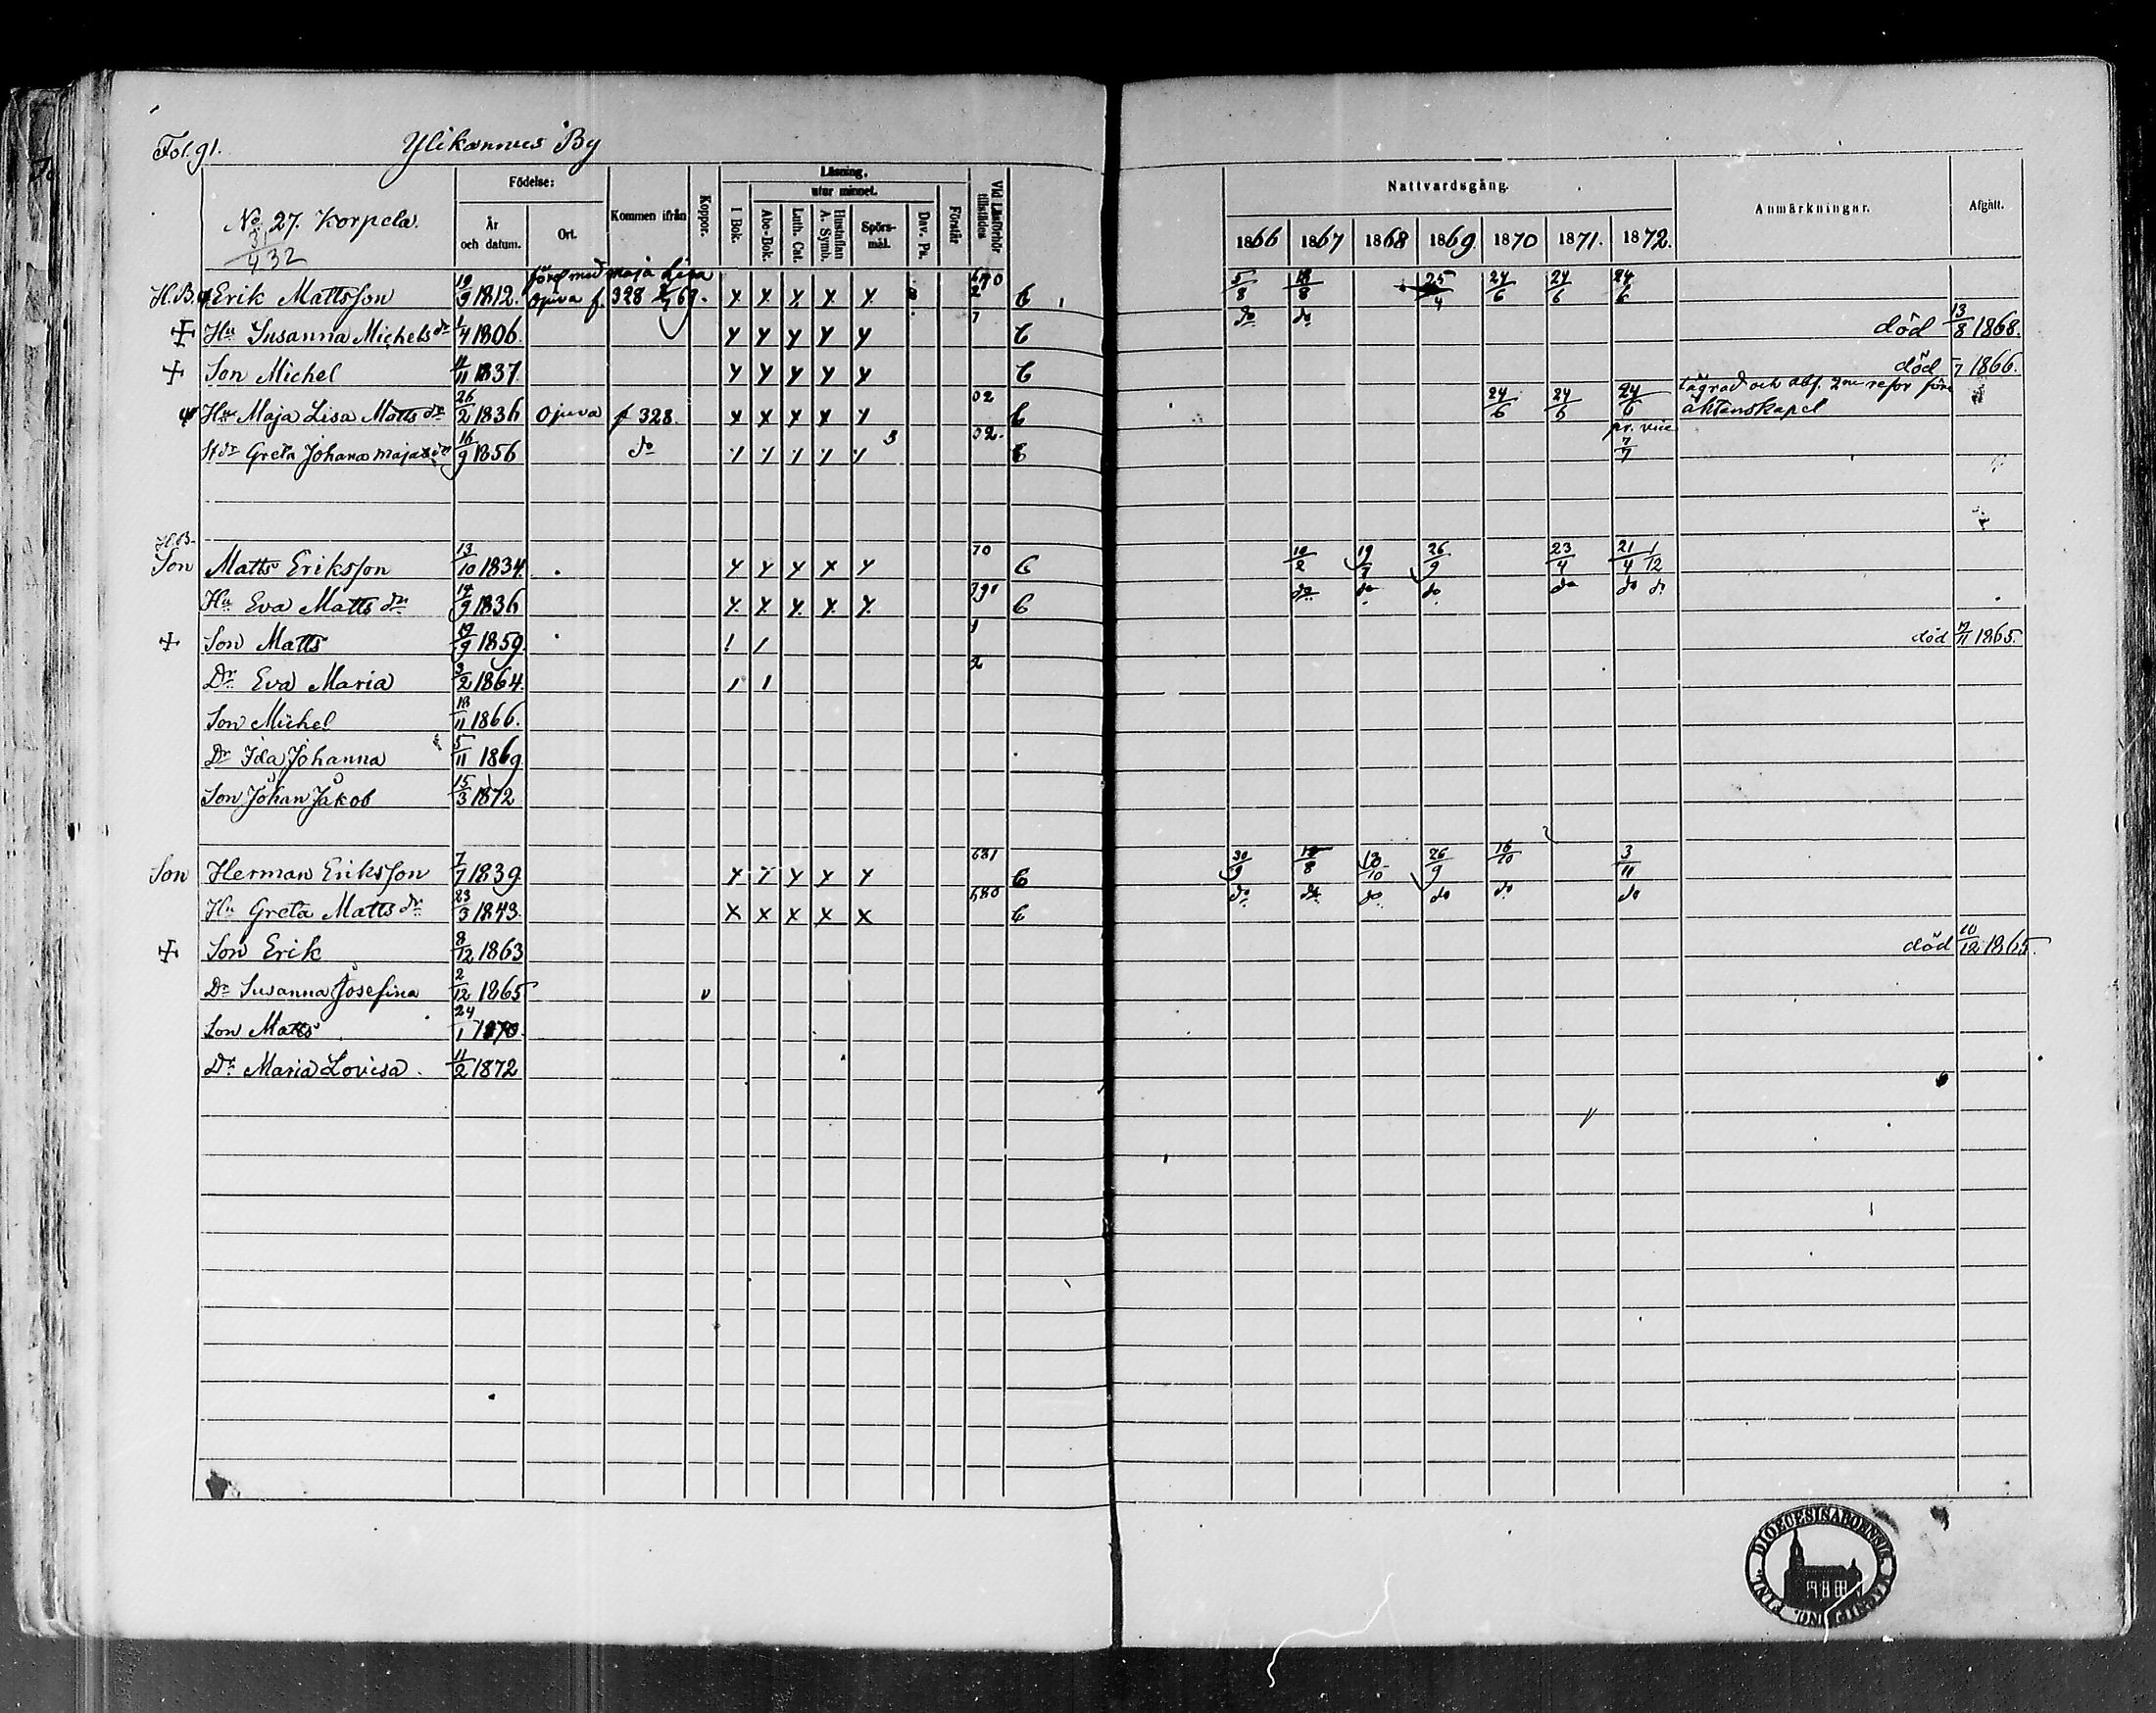 Fol. 91. Ylikannus By
No 27. Korpela.
31/432
Födelse:
År och datum.
Ort.
Kommen ifrån
Koppor.
Läsning.
utur minnet.
I Bok.
Abc-Bok.
Luth. Cat.
Hustaflan A. Symb.
Spörs-mål.
Dav. Ps.
Förstår
Vid Läsförhör tillstädes
Nattvardsgång.
1866 1867 1868 1869. 1870 1871. 1872.
Anmärkningar.
Afgått.
med Maja Lisa
H.B. Erik Mattsson 19/9 1812. Ojuva f. 328 69. 5/8 18/8 25/4 24/6 24/6 24/6
Hu Susanna Michelsdr 1/4 1806. 7 do do död 13/8 1868.
Son Michel 11/11 1837. död /7 1866.
Hu Maja Lisa Mattsdr 26/2 1836 Ojuva f 328. 24/6 24/6 24/6 lägrad och före äktenskapet
Greta Johana Maja 16/9 1856 do 7/7
H.B.
Son Matts Eriksson 13/10 1834. 70 10/2 19/7 26/9 23/4 21/4 1/12
Hu Eva Mattsdr 14/9 1836 do do do do do do
Son Matts 19/9 1859. 1 död 17/11 1865.
Dr Eva Maria 3/2 1864. 2
Son Michel 18/11 1866.
Dr Ida Johanna 5/11 1869
Son Johan Jakob 15/3 1872
Son Herman Eriksson 7/7 1839 681 30/9 18/8 18/10 26/9 16/10 3/11
Hu Greta Mattsdr 23/3 1843. 680 do do do do do do
Son Erik 8/12 1863 död 10/12 1865.
Dr Susanna Josefina 2/12 1865
Son Matts 24/1 1870.
Dr Maria Lovisa. 11/2 1872